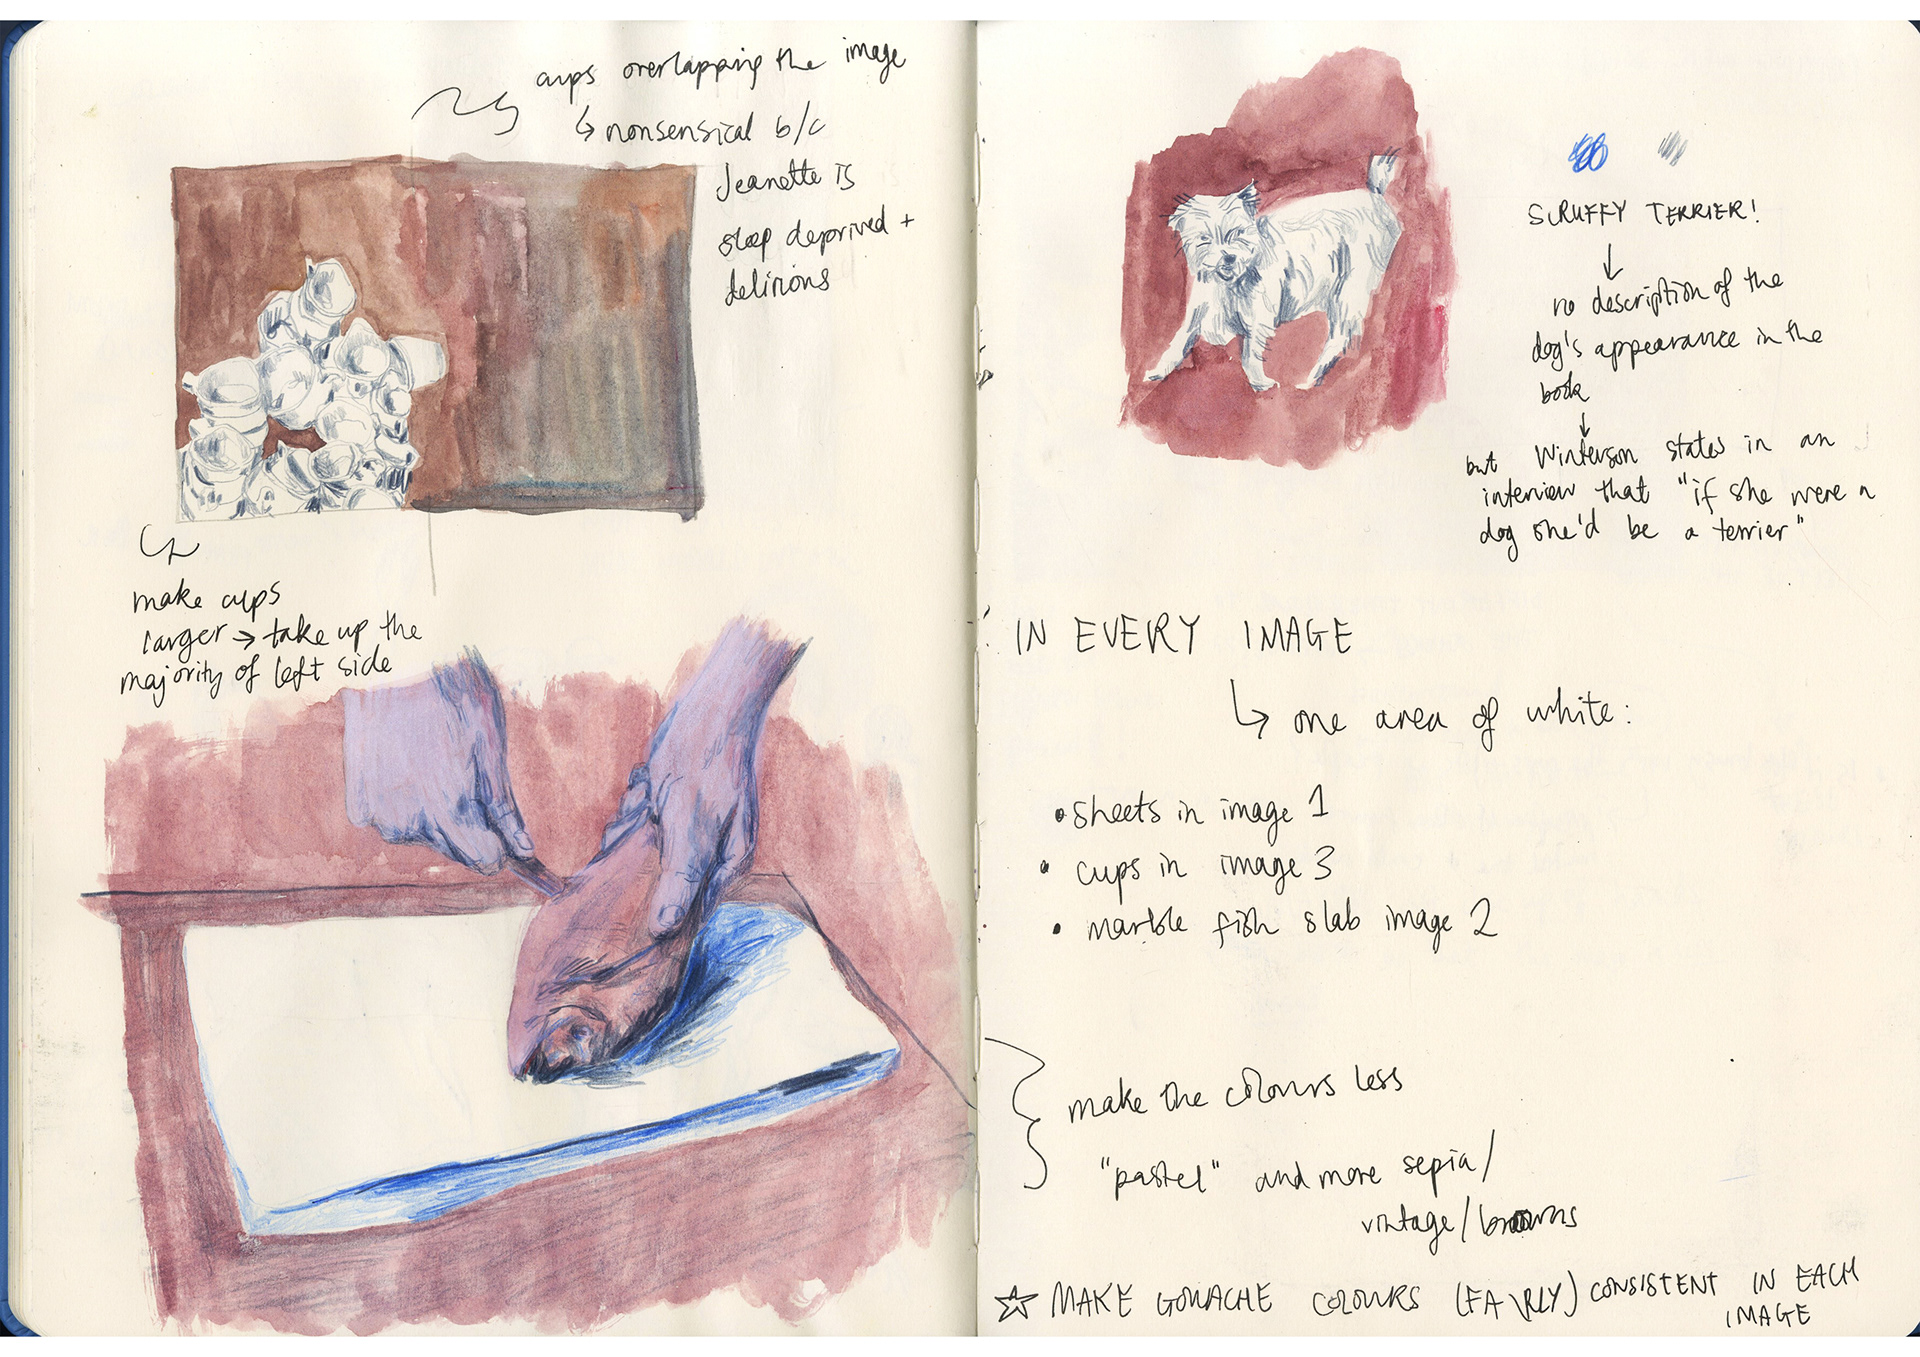 cups overlapping the image
↳ nonsensical b/c
Jeanette is
sleep deprived +
delirious
make cups
larger → take up the
majority of left side
SCRUFFY TERRIER!
↓
no description of the
dog's appearance in the
book
↓
but Winterson states in an
interview that "if she were a
dog she'd be a terrier"
IN EVERY IMAGE
↳ one area of white:
• sheets in image 1
• cups in image 3
• marble fish slab image 2
make the colours less
"pastel" and more sepia/
vintage/browns
☆ MAKE GOUACHE COLOURS (FAIRLY) CONSISTENT IN EACH
IMAGE